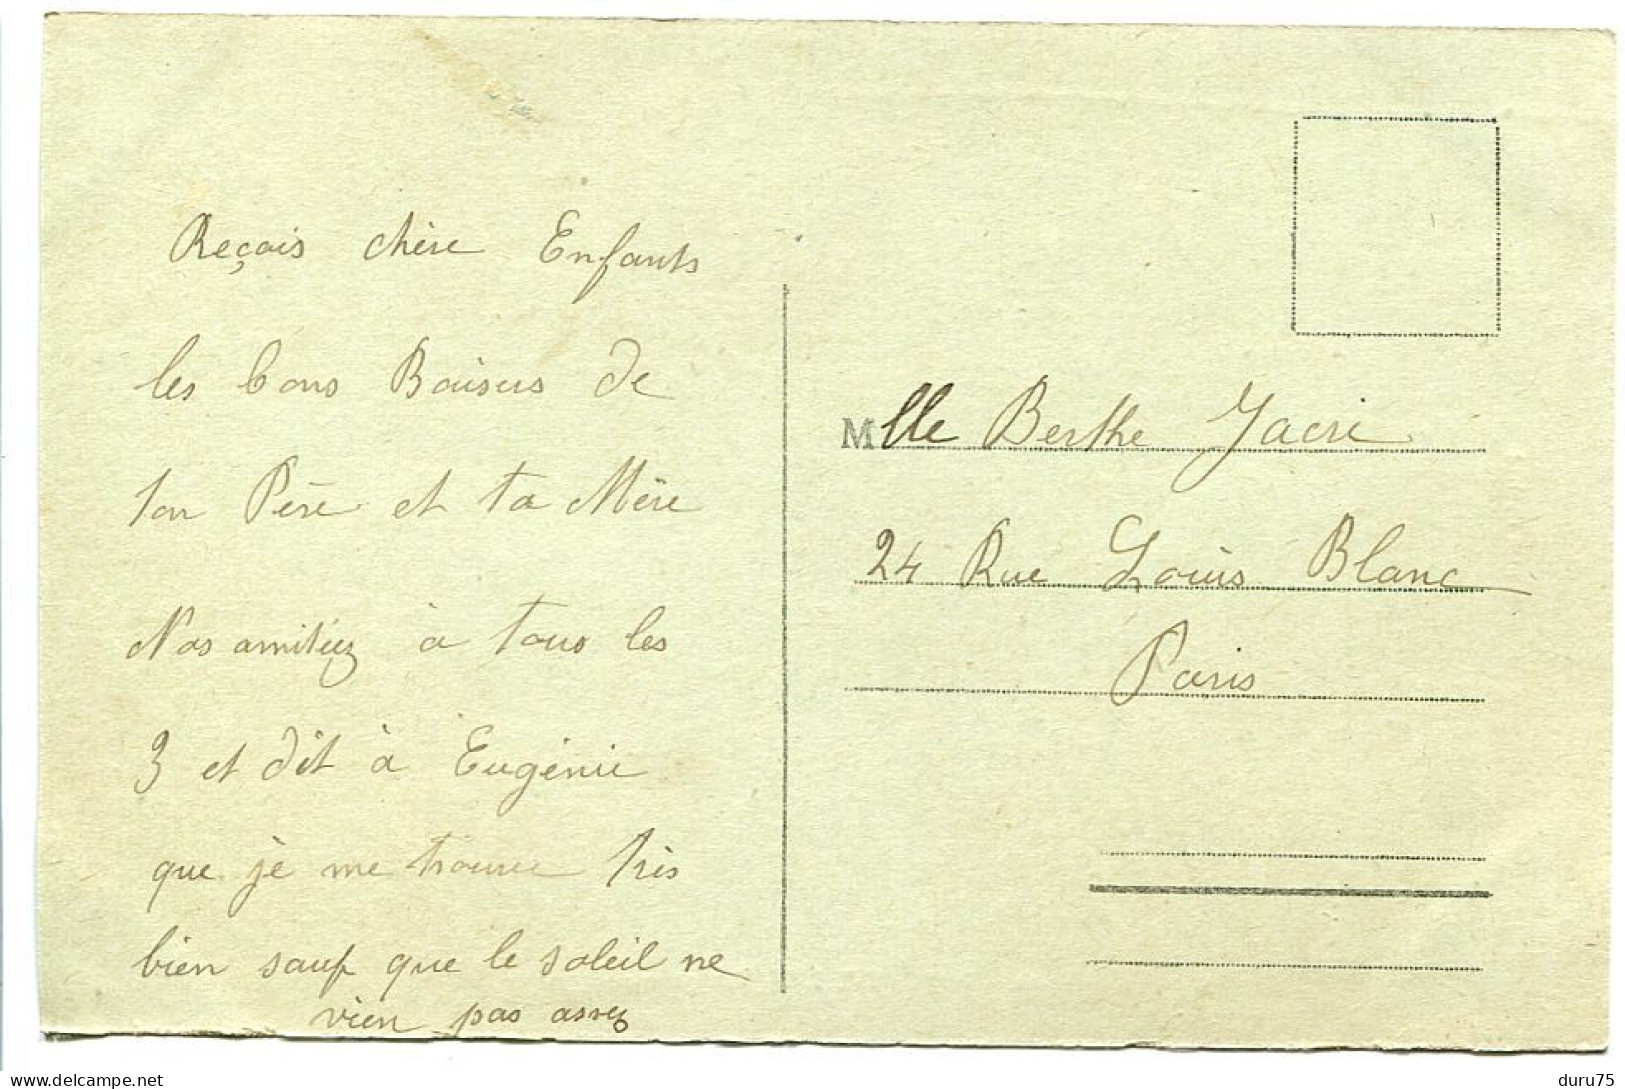 Reçois chère Enfants
les bons Baisers de
ton Père et ta Mère
Nos amitiéz à tous les
3 et dit à Eugénie
que je me trouve très
bien sauf que le soleil ne
vien pas assez
Mlle Berthe Jacri
24 Rue Louis Blanc
Paris
delcampe.net
duru75